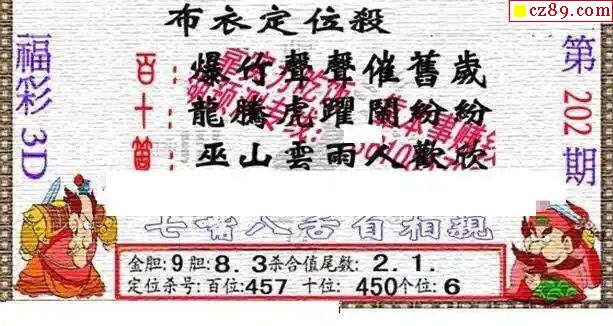 cz89.com
布衣定位殺
福彩3D
第202期
百：爆竹聲聲催舊歲
十：龍騰虎躍鬧紛紛
個：巫山雲雨人歡欣
七嘴八舌自相親
金胆：9胆：8.3杀合值尾数：2.1.
定位杀号：百位：457 十位：450个位：6